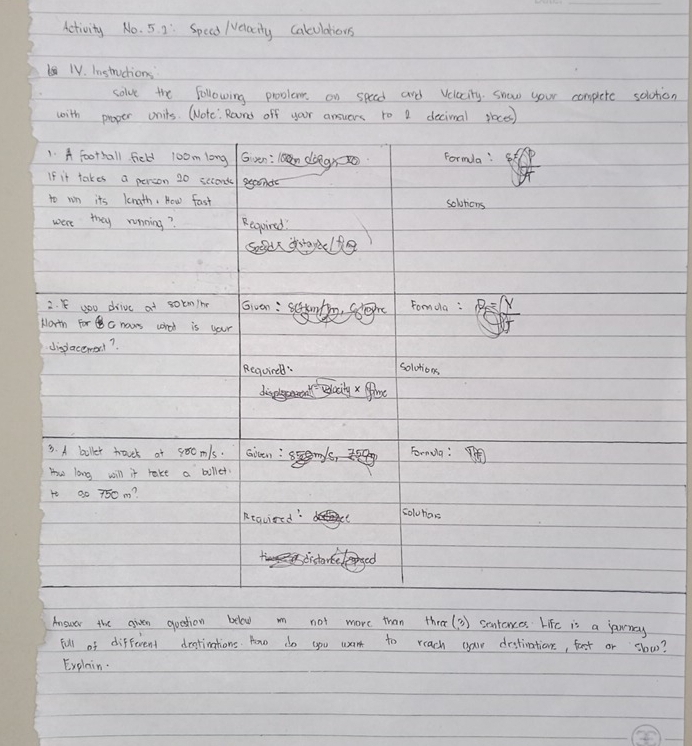 Activity No. 5.2: Speed/Velocity Calculations
IV. Instructions:
Solve the following problems on speed and velocity. Show your complete solution
with proper units. (Note: Round off your answers to 2 decimal places)
1. A football field 100m long
If it takes a person 20 seconds
to run its length. How fast
were they running?
Given: 100m
seconds
Required:
Speed = distance /
Formula:
Solutions
2. If you drive at 80km/hr
North for 6 hours what is your
displacement?
Given:
Required:
displacement = velocity × time
Formula:
Solutions
3. A bullet travels at 850 m/s.
How long will it take a bullet
to go 750 m?
Given: 850m/s, 750m
Required:
distance/speed
Formula:
Solutions
Answer the given question below in not more than three (3) sentences. Life is a journey
full of different destinations. How do you want to reach your destinations, fast or slow?
Explain.